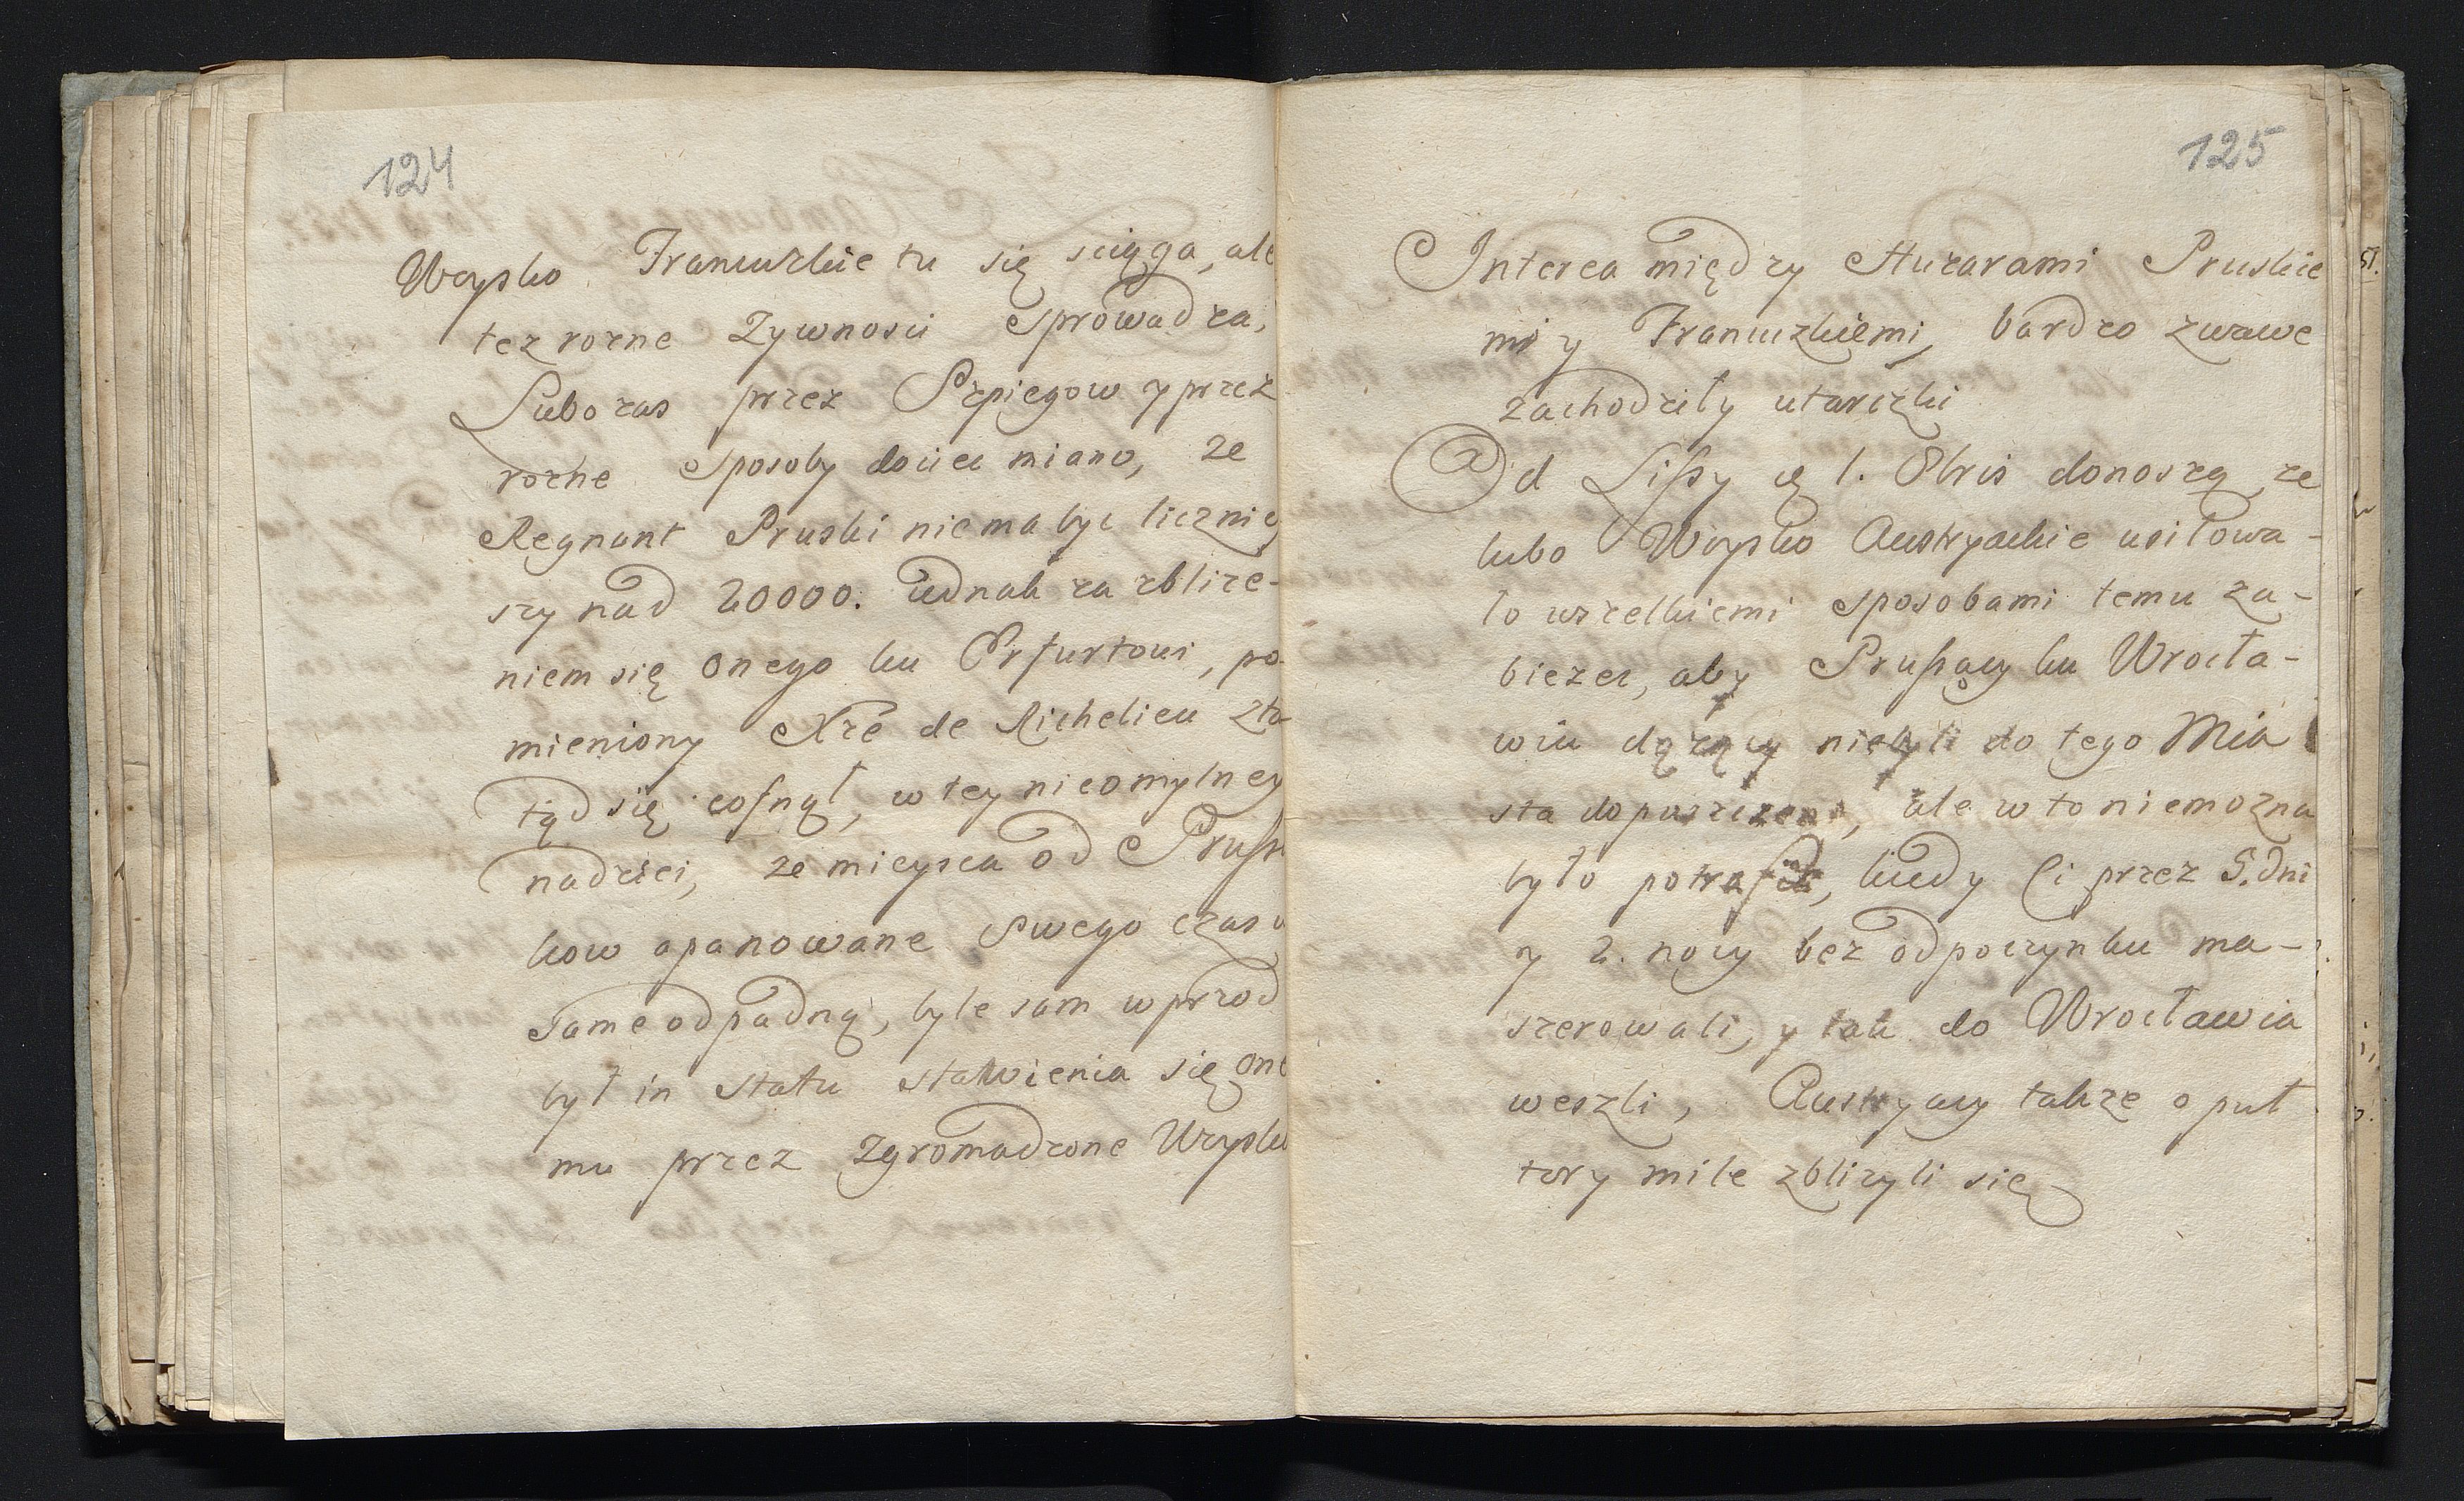 124
Woysko Francuzkie tu się sciąga, ale
tez rozne Zywnosci Sprowadza,
Lubo zas przez Szpiegow y przez
rozne Sposoby dociec miano, ze
Regnant Pruski niema byc liczniey
szy nad 20000. iednak za zblize-
niem się onego ku Erfurtowi, po
mieniony Xże de Richelieu zta
tąd się cofnął, w tey nieomylney
nadziei, ze mieysca od Prusa
kow opanowane Swego czasu
same odpadną, byle sam wprzod
był in Statu stawienia się one
mu przez zgromadzone Woysko
125
Interea między Huzarami Pruskie
mi y Francuzkiemi, bardzo zwawe
zachodziły utarczki
Od Lissy d. 1. Xbris donoszą, ze
lubo Woysko Austryackie usiłowa-
ło wszelkiemi sposobami temu za-
biezec, aby Prusacy ku Wrocła-
wiu dązący niebyli do tego Mia
sta dopuszczeni, ale w to niemozna
było potrafic, kiedy Ci przez 5. dni
y 2. nocy bez odpoczynku ma-
szerowali, y tak do Wrocławia
weszli, Austryacy takze o puł
tory mile zblizyli się